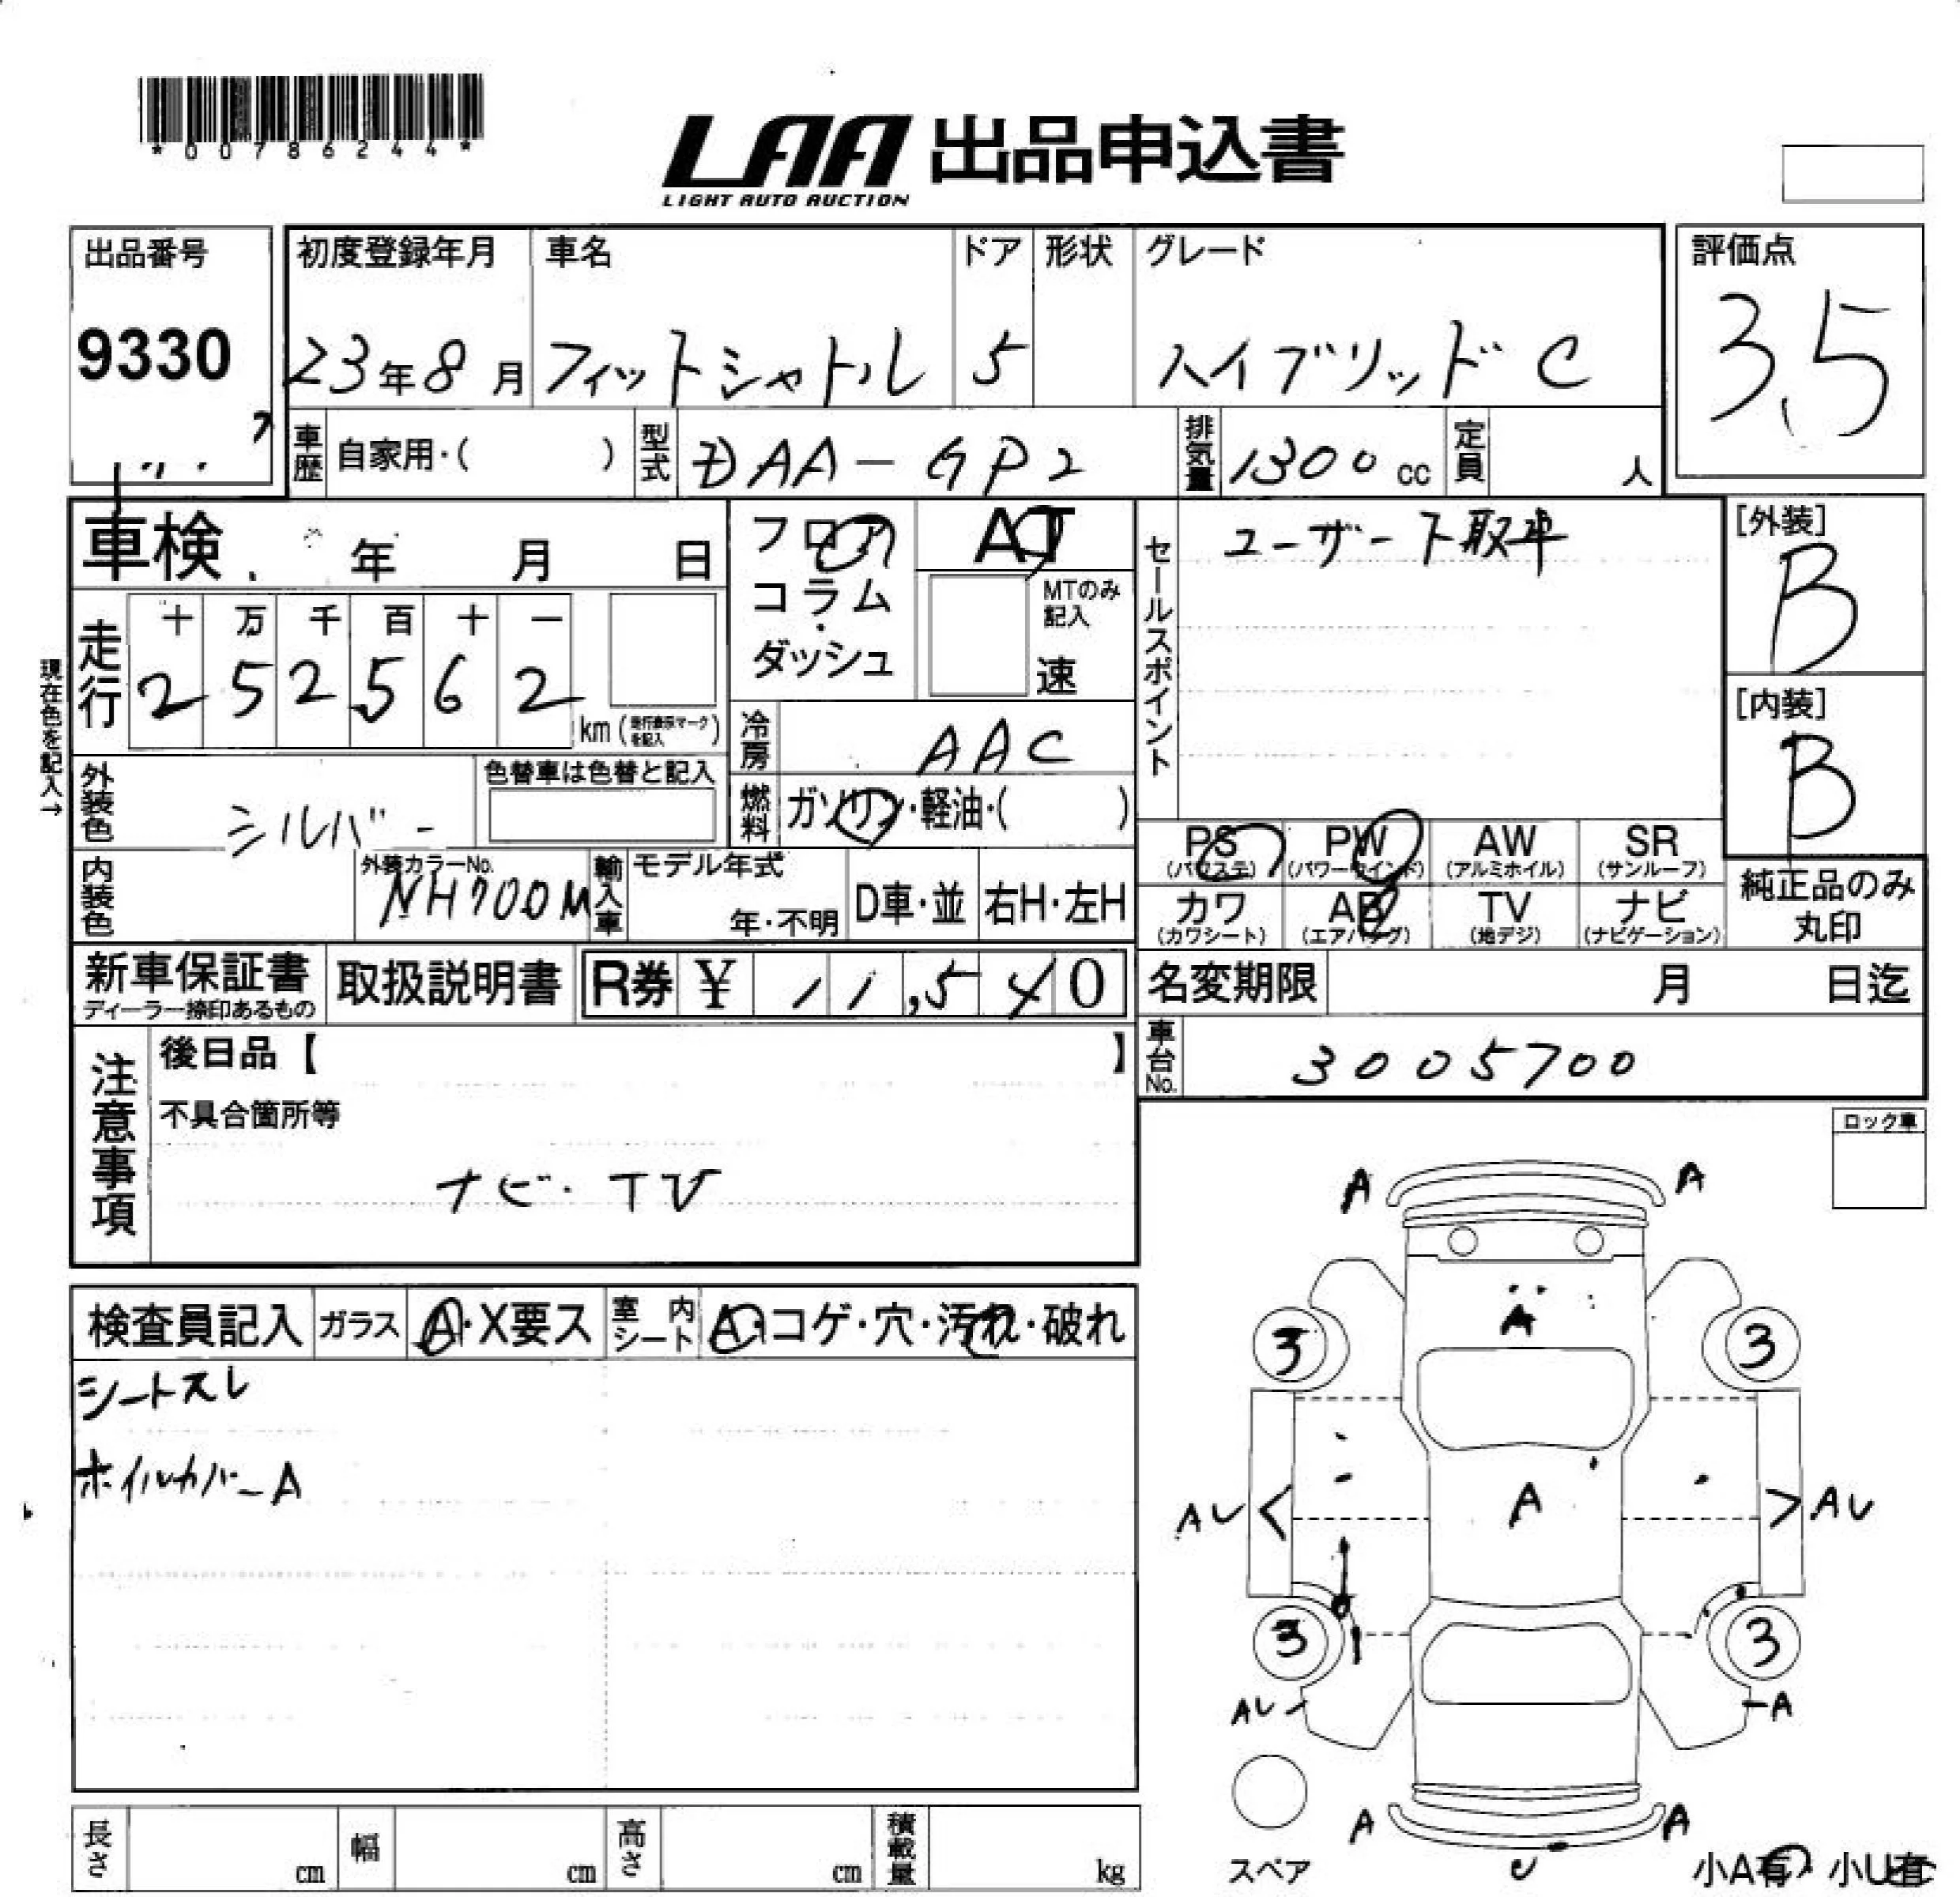 *00786244*
LAA 出品申込書
LIGHT AUTO AUCTION
出品番号
9330
初度登録年月
23年8月
車名
フィットシャトル
ドア
5
形状
グレード
ハイブリッド C
評価点
3.5
車歴 自家用・( )
型式 DAA-GP2
排気量 1300cc
定員 人
車検 年 月 日
フロア
コラム
・
ダッシュ
AT
MTのみ
記入
速
セールスポイント
ユーザー下取車
[外装]
B
[内装]
B
現在色を記入→
走行
十 万 千 百 十 一
2 5 2 5 6 2
km (走行表示マークを記入)
冷房 AAC
外装色 シルバー
色替車は色替と記入
燃料 ガソリン・軽油・( )
PS
(パワステ)
PW
(パワーウインド)
AW
(アルミホイル)
SR
(サンルーフ)
内装色
外装カラーNo.
NH700M
輸入車
モデル年式
年・不明
D車・並
右H・左H
カワ
(カワシート)
AB
(エアバッグ)
TV
(地デジ)
ナビ
(ナビゲーション)
純正品のみ
丸印
新車保証書
ディーラー捺印あるもの
取扱説明書
R券 ¥ 11,540
名変期限 月 日迄
車台No. 3005700
注意事項
後日品【 】
不具合箇所等
ナビ・TV
ロック車
検査員記入
ガラス
A・X要ス
室内シート
A・コゲ・穴・汚れ・破れ
シートスレ
ホイルカバーA
A A
A
3 3
AU < A > AU
3 3
AU A
A A
U
スペア
小A有・小U有
長さ cm
幅 cm
高さ cm
積載量 kg